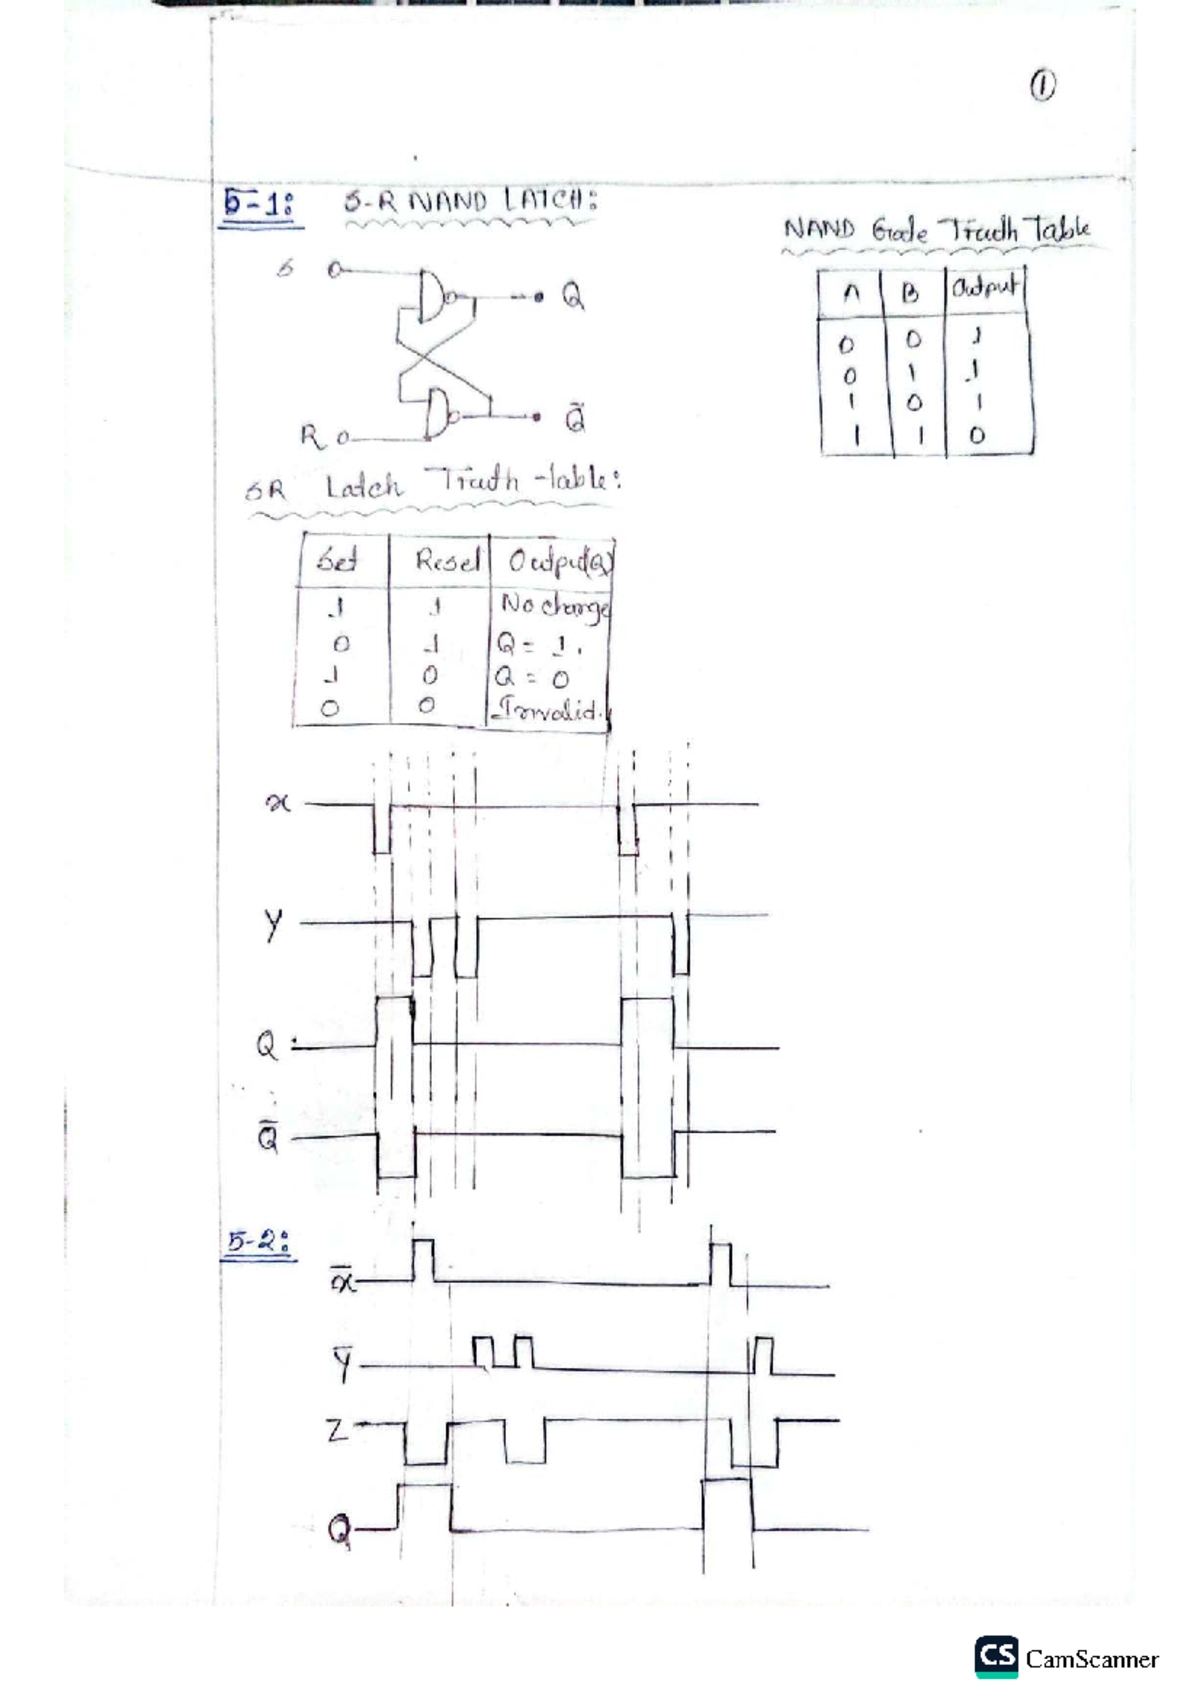 ①
5-1: S-R NAND LATCH:
NAND Gate Truth Table
S Q
A B Output
0 0 1
0 1 1
1 0 1
1 1 0
R Q̄
SR Latch Truth-table:
Set Reset Output(Q)
1 1 No change
0 1 Q = 1.
1 0 Q = 0
0 0 Invalid.
x
Y
Q
Q̄
5-2:
x̄
Ȳ
Z
Q
CS CamScanner